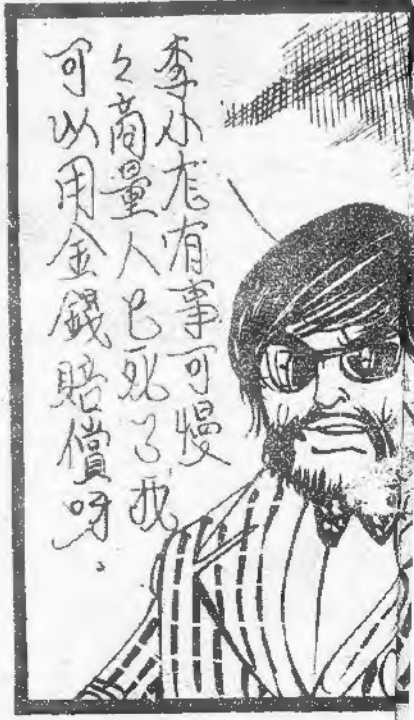 李小尨有事可慢
々商量人已死了我
可以用金錢賠償呀。